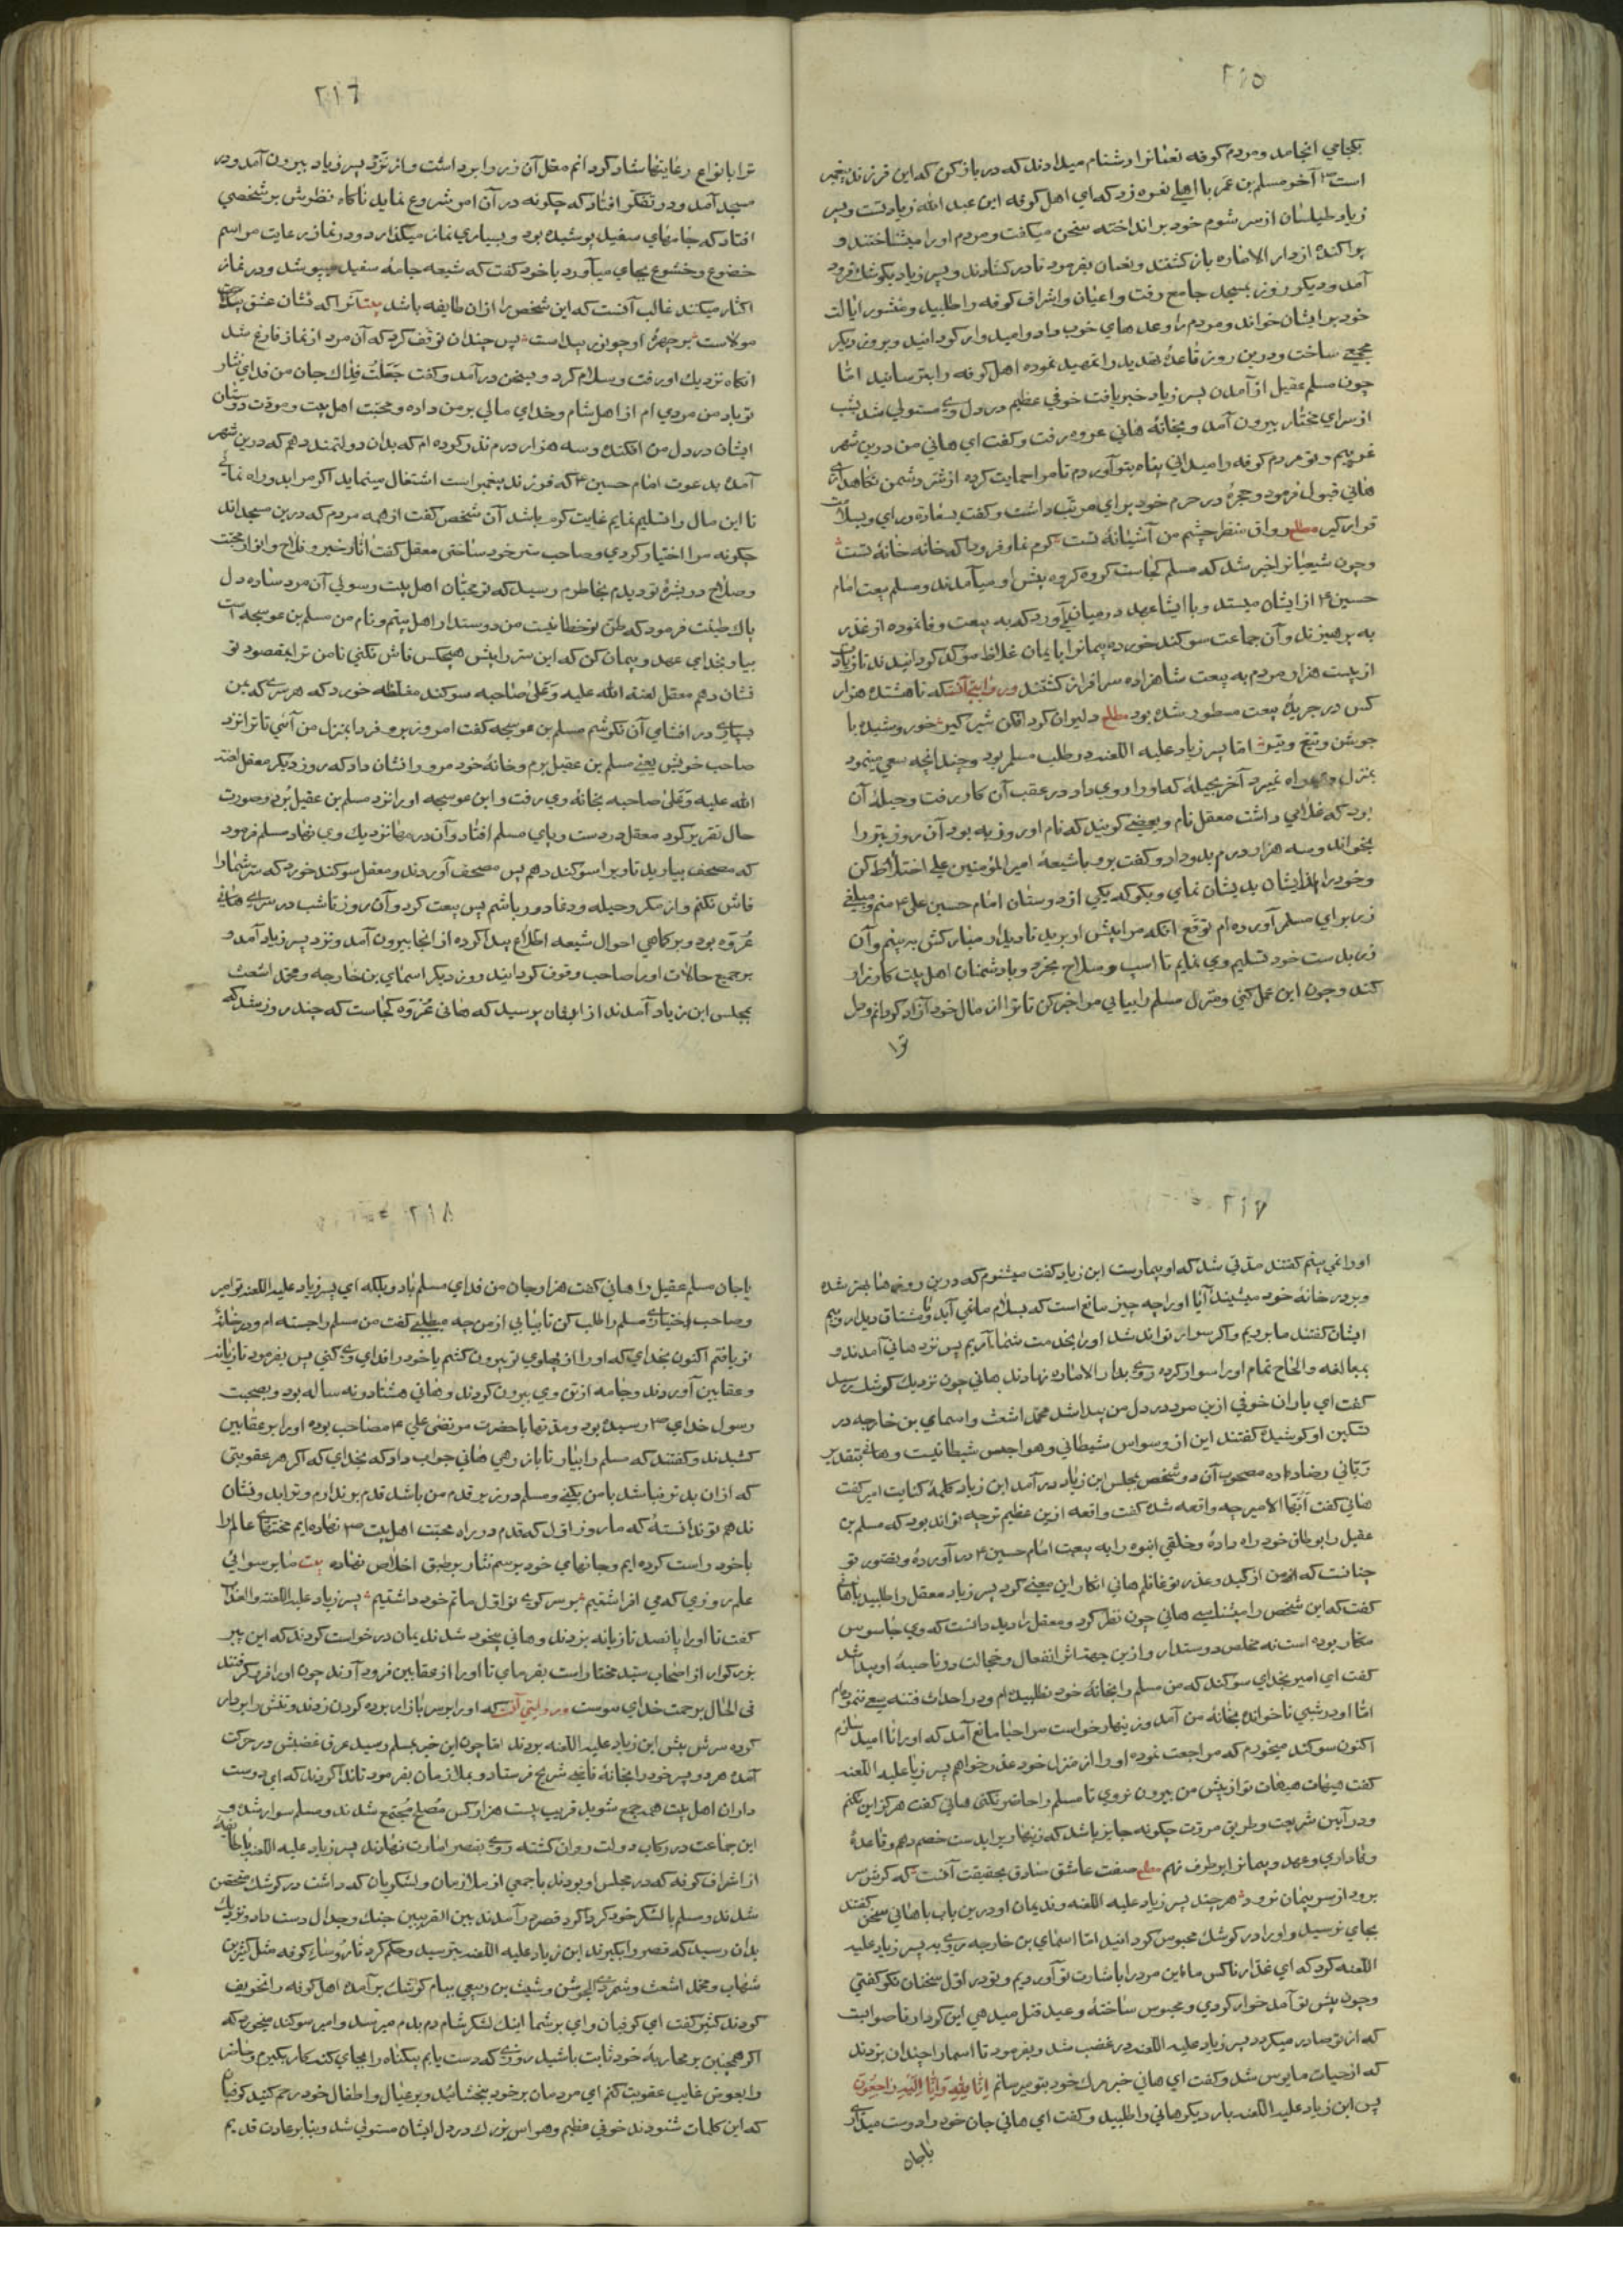 ۲۱۵
بکجا می انجامد و مردم کوفه نعمانرا دشنام میدادند که در باز کن که این فرزند پیغمبر
است ص آخر مسلم بن عمر باهلی نعره زد که ای اهل کوفه این عبد الله زیادست و پسر
زیاد طیلسان از سر شوم خود بر انداخته سخن میگفت و مردم او را میشناختند و
پراکنده از دار الاماره باز گشتند و نعمان بفرمود تا در کشادند و پسر زیاد بکوشک فرود
آمد و دیگر روز بمسجد جامع رفت و اعیان و اشراف کوفه را طلبید و منشور ایالت
خود بر ایشان خواند و مردم را وعدهای خوب داد و امیدوار گردانید و بروز دیگر
مجمعی ساخت و درین روز قاعدهٔ تهدید را تمهید نموده اهل کوفه را بترسانید امّا
چون مسلم عقیل از آمدن پسر زیاد خبر یافت خوفی عظیم در دل وی مستولی شد بشب
از سرای مختار بیرون آمد و بخانهٔ هانی عروه رفت و گفت ای هانی من درین شهر
غریبم و تو مردم کوفه را میدانی پناه بتو آوردم تا مرا حمایت کرده از شرّ دشمن نگاهداری
هانی قبول فرمود و حجرهٔ در حرم خود برای مرتّب داشت و گفت بسعادت در آی و بسلامت
قرار گیر مطلع رواق منظر چشم من آشیانهٔ تست کرم نما و فرود آ که خانه خانهٔ تست
و چون شیعیانرا خبر شد که مسلم کجاست گروه گروه پیش او میآمدند و مسلم بیعت امام
حسین ع از ایشان میستد و با ایشان عهد در میان می‌آورد که به بیعت وفا نموده از غدر
به پرهیزند و آن جماعت سوگند خورده پیمانرا بایمان غلاظ مؤکد گردانیدند تا زیاده
از بیست هزار مردم به بیعت شاهزاده سرافراز گشتند و روایتی آنست که تا هشتده هزار
کس در جریدهٔ بیعت مسطور شده بود مطلع دلیران گرد افکن شیر گیر خروشیده با
جوشن و تیغ و تیر امّا پسر زیاد علیه اللعنه در طلب مسلم بود و چندانچه سعی مینمود
بمنزل وی راه نمیبرد آخر بحیلهٔ که او را روی داد در عقب آن کار رفت و حیلهٔ آن
بود که غلامی داشت معقل نام و بعضی گویند که نام او روز به بود آن روز بتر را
بخواند و سه هزار درم بدو داد و گفت برو با شیعهٔ امیر المؤمنین علی اختلاط کن
و خود را از ایشان بدیشان نمای و بگو که یکی از دوستان امام حسین علی ع منم و مبلغی
زر برای مسلم آورده ام توقّع آنکه مرا پیش او برید تا دیدار مبارکش به بینم و آن
زر بدست خود تسلیم وی نمایم تا اسپ و سلاح بخرد و با دشمنان اهل بیت کارزار
کند و چون این عمل کنی و منزل مسلم را بیابی مرا خبر کن تا ترا از مال خود آزاد گردانم و دل
ترا
۲۱۶
ترا بانواع رعایتها شاد گردانم معقل آن زر را بر داشت و از نزد پسر زیاد بیرون آمد و در
مسجد آمد و در تفکّر افتاد که چگونه در آن امر شروع نماید ناگاه نظرش بر شخصی
افتاد که جامهای سفید پوشیده بود و بسیاری نماز میگذارد و در نماز رعایت مراسم
خضوع و خشوع بجای میآورد با خود گفت که شیعه جامهٔ سفید پوشد و در نماز
اکثار میکنند غالب آنست که این شخص را از ان طایفه باشد بیت آنرا که نشان عشق
مولاست بر چهرهٔ او چو نور پیداست پس چندان توقّف کرد که آن مرد از نماز فارغ شد
آنگاه نزدیک او رفت و سلام کرد و بسخن در آمد و گفت جَعَلتُ فداک جان من فدای نثار
تو باد من مردی ام از اهل شام و خدای مالی بر من داده و محبّت اهل بیت و مودّت دوستان
ایشان در دل من افکنده و سه هزار درم نذر کرده ام که بدان دولتمند دهم که درین شهر
آمده بدعوت امام حسین ع که فرزند پیغمبر است اشتغال مینماید اگر مرا بدو راه نمائی
تا این مال را تسلیم نمایم غایت کرم باشد آن شخص گفت از همه مردم که درین مسجد اند
چگونه مرا اختیار کردی و صاحب سرّ خود ساختی معقل گفت آثار خیر و فلاح و انوار
و صلاح در بشرهٔ تو دیدم بخاطرم رسید که تو محبّان اهل بیت رسولی آن مرد ساده دل
پاک طینت فرمود که ظنّ تو خطا نیست من دوستدار اهل بیتم و نام من مسلم بن عوسجه است
بیا و بخدای عهد و پیمان کن که این سرّ را پیش هیچکس فاش نکنی تا من ترا بمقصود تو
نشان دهم معقل لعنة الله علیه و علی صاحبه سوگند مغلّظه خورد که هر سری که بمن
بسپاری در افشای آن نکوشم مسلم بن عوسجه گفت امروز برو فردا بمنزل من آئی تا ترا نزد
صاحب خویش یعنی مسلم بن عقیل برم و خانهٔ خود مرو را نشان داد که روز دیگر معقل لعنة
الله علیه و علی صاحبه بخانهٔ وی رفت و ابن عوسجه او را نزد مسلم بن عقیل بُرد و صورت
حال تقریر کرد معقل در دست و پای مسلم افتاد و آن درمها نزدیک وی نهاد مسلم فرمود
که مصحف بیارید تا ویرا سوگند دهم پس مصحف آوردند و معقل سوگند خورد که سرّ شما را
فاش نکنم و از مکر و حیله و دغا دور باشم پس بیعت کرد و آن روز تا شب در سرای هانی
عُروَه بود و بر کماهی احوال شیعه اطلاع پیدا کرده از انجا بیرون آمد و نزد پسر زیاد آمد و
بر جمیع حالات او را صاحب وقوف گردانید روز دیگر اسمای بن خارجه و محمّد اشعث
بمجلس ابن زیاد آمدند از ایشان پرسید که هانی عُروَه کجاست که چند روز شد که
۲۱۷
او را نمی بینم گفتند مدّتی شد که او بیمارست ابن زیاد گفت میشنوم که درین روزها بهتر شده
و بر در خانهٔ خود میشیند آیا او را چه چیز مانع است که بسلام ما نمی آید و ما مشتاق دیدار وییم
ایشان گفتند ما برویم و اگر سوار تواند شد او را بخدمت شما آریم پس نزد هانی آمدند و
بمبالغه و الحاح تمام او را سوار کرده روی بدار الاماره نهادند هانی چون نزدیک کوشک رسید
گفت ای یاران خوفی ازین مرد در دل من پیدا شد محمّد اشعث و اسمای بن خارجه در
تسکین او کوشیده گفتند این از وسواس شیطانی و هواجس شیطانیست و هانی بتقدیر
ربّانی رضا داده مصحوب آن دو شخص بمجلس ابن زیاد در آمد ابن زیاد کلمهٔ کنایت امیر گفت
هانی گفت ایّها الامیر چه واقعه شده گفت واقعه ازین عظیم تر چه تواند بود که مسلم بن
عقیل را بوطاق خود راه دادهٔ و خلقی انبوه را به بیعت امام حسین ع در آوردهٔ و تصوّر تو
چنانست که از من از کید و غدر تو غافلم هانی انکار این معنی کرد پسر زیاد معقل را طلبید با هانی
گفت که این شخص را میشناسی هانی چون نظر کرد و معقل را دید دانست که وی جاسوس
مکّار بوده است نه مخلص دوستدار و ازین جهت اثر انفعال و خجالت در ناصیهٔ او پیدا شد
گفت ای امیر بخدای سوگند که من مسلم را بخانهٔ خود نطلبیده ام و در احداث فتنه سعی ننموده ام
امّا او در شبی ناخوانده بخانهٔ من آمد و زینهار خواست مرا حیا مانع آمد که او را نا امید سازم
اکنون سوگند میخورم که مراجعت نموده او را از منزل خود عذر خواهم پسر زیاد علیه اللعنه
گفت هیهات هیهات تو از پیش من بیرون نروی تا مسلم را حاضر نکنی هانی گفت هرگز این نکنم
و در آیین شریعت و طریق مروّت چگونه جایز باشد که زینهاریرا بدست خصم دهم و قاعدهٔ
وفاداری و عهد و پیمانرا بر طرف نهم مطلع صفت عاشق صادق بحقیقت آنست که گرش سر
برود از سر پیمان نرود هر چند پسر زیاد علیه اللعنه و ندیمان او درین باب با هانی سخن گفتند
بجای نرسید و او را در کوشک محبوس گردانید امّا اسمای بن خارجه روی به پسر زیاد علیه
اللعنه کرد که ای غدّار ناکس ما این مرد را باشارت تو آوردیم و تو در اوّل سخنان نیکو گفتی
و چون پیش تو آمد خوار کردی و محبوس ساختهٔ و وعید قتل میدهی این کردار ناصوابست
که از تو صادر میگردد پسر زیاد علیه اللعنه در غضب شد و بفرمود تا اسما را چندان بزدند
که از حیات مایوس شد و گفت ای هانی خبر مرگ خود بتو میرسانم اِنّا لِلّٰهِ وَ اِنّا اِلَیهِ راجِعُونَ
پس ابن زیاد علیه اللعنه بار دیگر هانی را طلبید و گفت ای هانی جان خود را دوست میداری
یا جان
۲۱۸
یا جان مسلم عقیل را هانی گفت هزار جان من فدای مسلم باد و بلکه ای پسر زیاد علیه اللعنه تو امیر
و صاحب اختیاری مسلم را طلب کن تا بیابی از من چه میطلبی گفت من مسلم را جسته ام و در خانهٔ
تو یافتم اکنون بخدای که او را از پهلوی تو بیرون کشم یا خود را فدای وی کنی پس بفرمود تازیانه
و عقابین آوردند و جامه از تن وی بیرون کردند و هانی هشتاد و نه ساله بود و بصحبت
رسول خدای ص رسیده بود و مدّتها با حضرت مرتضی علی ع مصاحب بوده او را بر عقابین
کشیدند و گفتند که مسلم را بیار تا باز رهی هانی جواب داد که بخدای که اگر هر عقوبتی
که از ان بدتر نباشد با من بکنی و مسلم در زیر قدم من باشد قدم بر ندارم و ترا بدو نشان
ندهم تو ندانستهٔ که ما روز اوّل که قدم در راه محبّت اهل بیت ص نهاده ایم محنتهای عالم را
با خود راست کرده ایم و جانهای خود برسم نثار بر طبق اخلاص نهاده بیت ما بر سوائی
علم روزی که می افراشتیم بر سر کوی تو اوّل ماتم خود داشتیم پسر زیاد علیه اللعنة و العذاب
گفت تا او را پانصد تازیانه بزدند و هانی بیخود شد ندیمان درخواست کردند که این پیر
بزرگوار از اصحاب سیّد مختار است بفرمای تا او را از عقابین فرود آرند چون او را فرو گرفتند
فی الحال برحمت خدای پیوست و روایتی آنست که او را بر سر بازار بوده گردن زدند و تنش را بر دار
کرده سرش پیش ابن زیاد علیه اللعنه بردند امّا چون این خبر بمسلم رسید عرق غضبش در حرکت
آمده هر دو پسر خود را بخانهٔ قاضی شریح فرستاد و بملازمان بفرمود تا ندا کردند که ای دوست
داران اهل بیت همه جمع شوید قریب بیست هزار کس مُصلح مُجتمع شدند و مسلم سوار شده و
این جماعت در رکاب دولت روان گشته روی بقصر امارت نهادند پسر زیاد علیه اللعنه با طایفهٔ
از اشراف کوفه که در مجلس او بودند با جمعی از ملازمان و لشکریان که داشت در کوشک متحصّن
شدند و مسلم با لشکر خود گرداگرد قصر در آمدند بین الفریقین جنگ و جدال دست داد و نزدیک
بدان رسید که قصر را بگیرند ابن زیاد علیه اللعنه بترسید و حکم کرد تا رؤسای کوفه مثل کثیر بن
شهاب و محمد اشعث و شمر ذی الجوشن و شیث بن ربعی ببام کوشک بر آمده اهل کوفه را تخویف
کردند کثیر گفت ای کوفیان وای بر شما اینک لشکر شام دم بدم میرسد و امیر سوگند میخورد که
اگر همچنین بر محاربهٔ خود ثابت باشید روزی که دست یابم بیگناه را بجای گنه‌کار بگیرم و حاضر
را بعوض غایب عقوبت کنم ای مردمان بر خود ببخشائید و بر عیال و اطفال خود رحم کنید کوفیان
که این کلمات شنودند خوفی عظیم و هراس بزرگ در دل ایشان مستولی شد و بنابر عادت قدیم